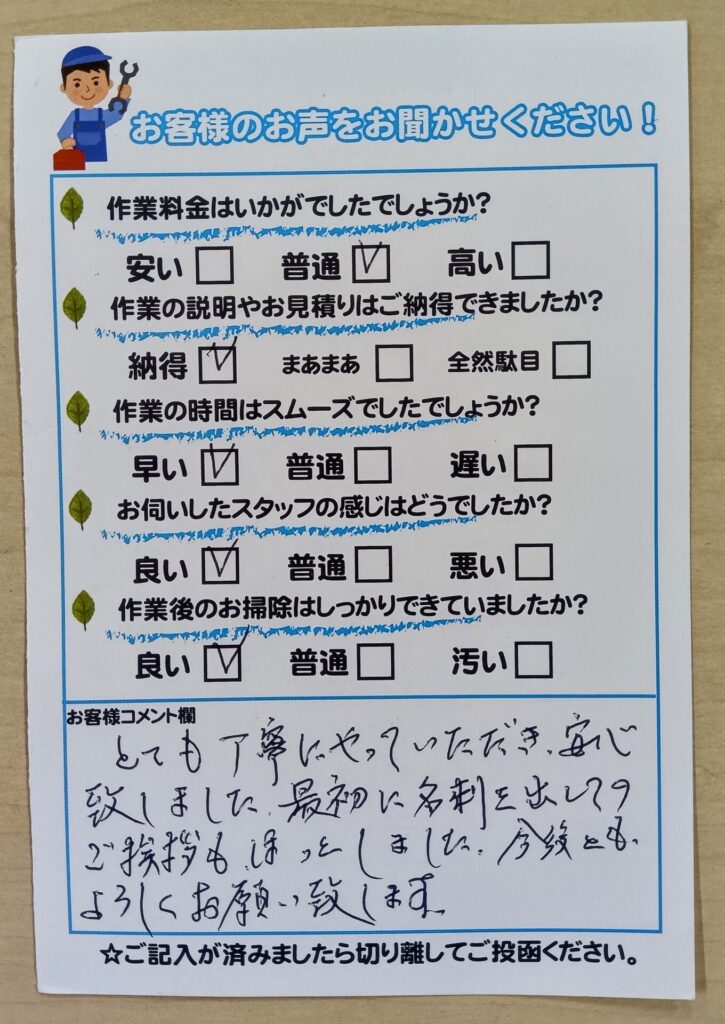 お客様のお声をお聞かせください！
作業料金はいかがでしたでしょうか？
安い □ 普通 ☑ 高い □
作業の説明やお見積りはご納得できましたか？
納得 ☑ まあまあ □ 全然駄目 □
作業の時間はスムーズでしたでしょうか？
早い ☑ 普通 □ 遅い □
お伺いしたスタッフの感じはどうでしたか？
良い ☑ 普通 □ 悪い □
作業後のお掃除はしっかりできていましたか？
良い ☑ 普通 □ 汚い □
お客様コメント欄
とても丁寧にやっていただき、安心
致しました。最初に名刺を出しての
ご挨拶も、ほっとしました。今後とも、
よろしくお願い致します。
☆ご記入が済みましたら切り離してご投函ください。